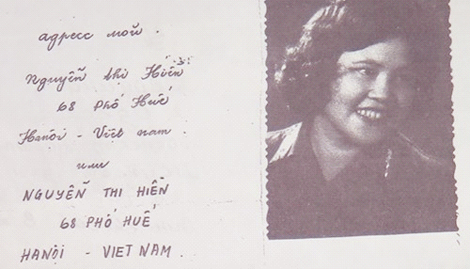 адресс мой.
Nguyễn thị Hiền
68 Phố Huế
Hanội - Việt nam.
или
NGUYỄN THI HIỀN
68 PHỐ HUẾ
HANỘI - VIET NAM.